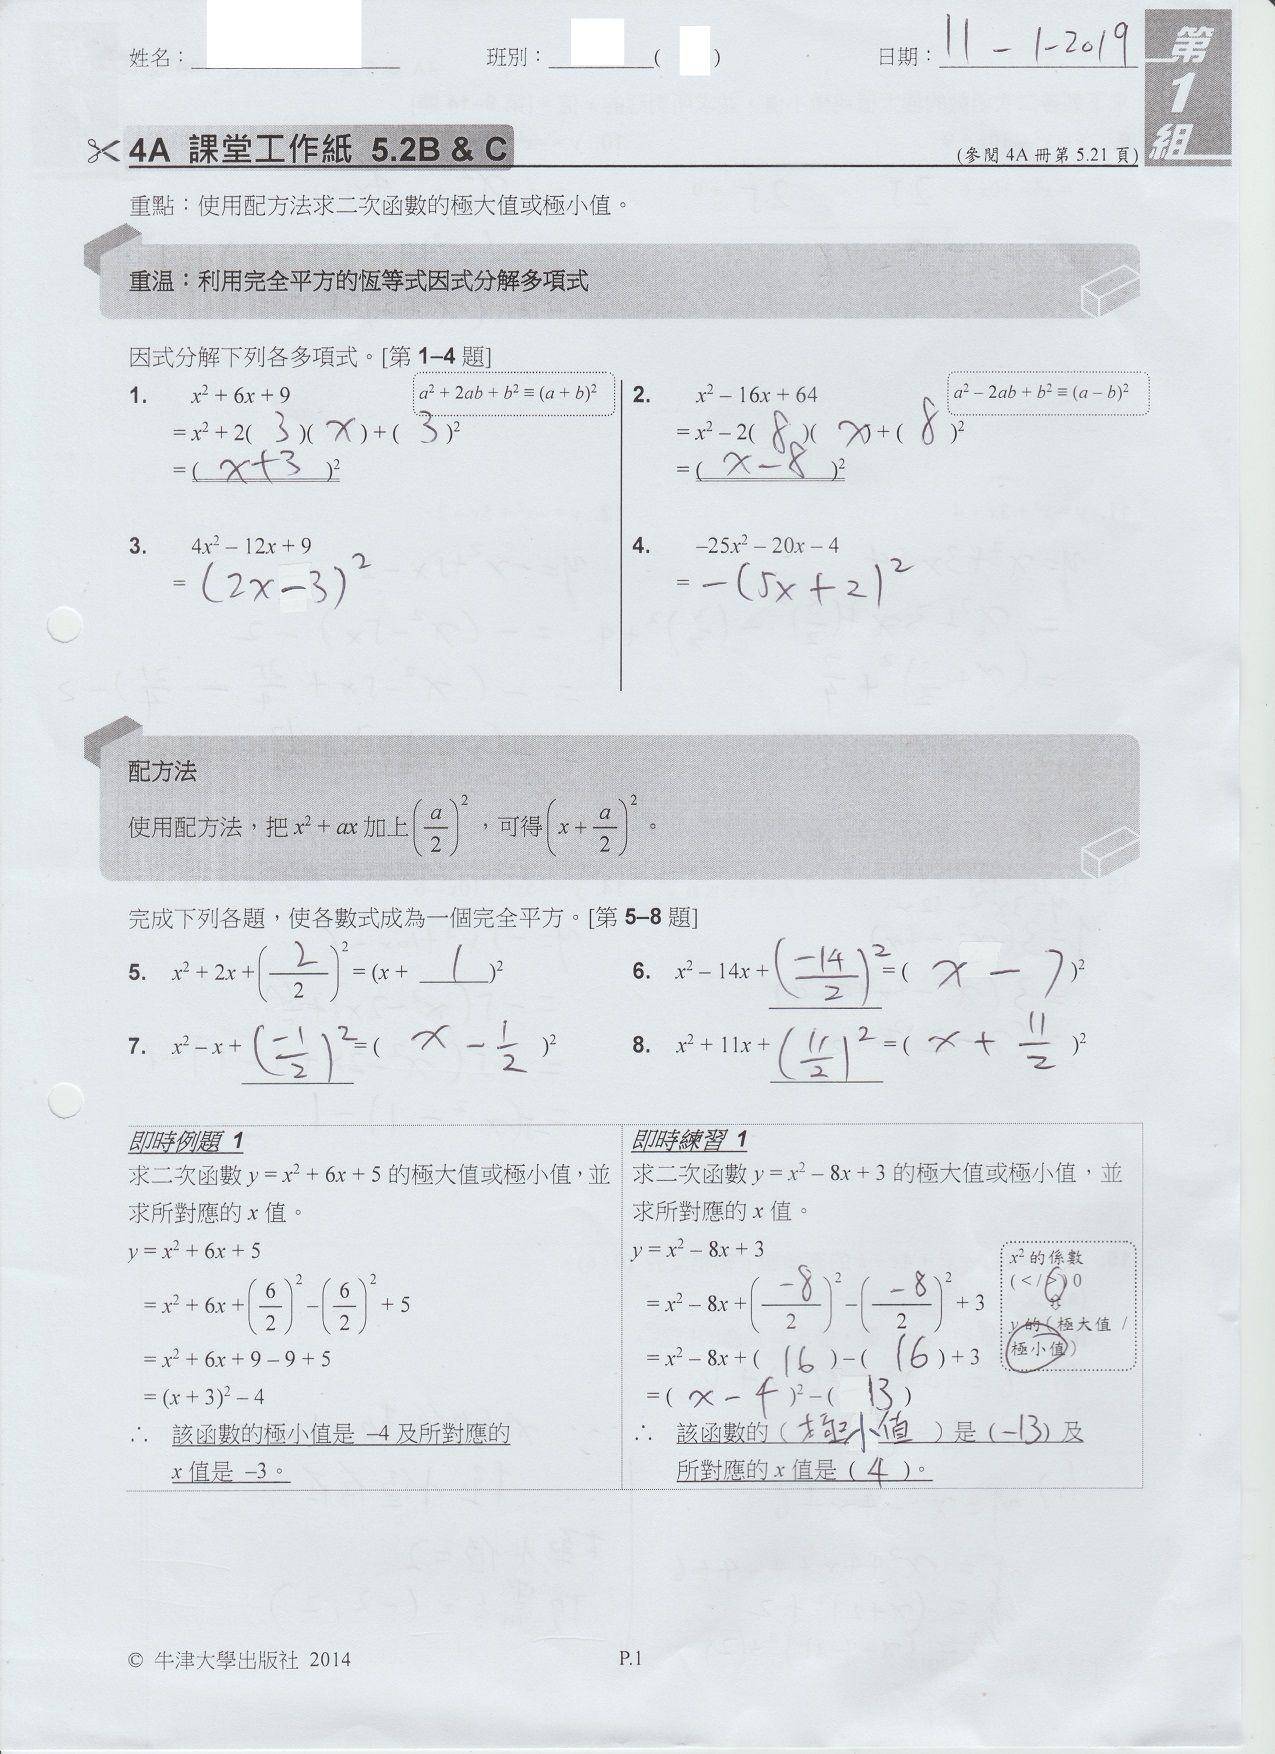 姓名： 班別： ( ) 日期：11-1-2019
第1組
4A 課堂工作紙 5.2B & C
(參閱 4A 冊第 5.21 頁)
重點：使用配方法求二次函數的極大值或極小值。
重温：利用完全平方的恆等式因式分解多項式
因式分解下列各多項式。[第 1–4 題]
1. x² + 6x + 9
a² + 2ab + b² ≡ (a + b)²
= x² + 2( 3 )( x ) + ( 3 )²
= ( x+3 )²
2. x² – 16x + 64
a² – 2ab + b² ≡ (a – b)²
= x² – 2( 8 )( x ) + ( 8 )²
= ( x-8 )²
3. 4x² – 12x + 9
= (2x-3)²
4. –25x² – 20x – 4
= -(5x+2)²
配方法
使用配方法，把 x² + ax 加上 (a/2)²，可得 (x + a/2)²。
完成下列各題，使各數式成為一個完全平方。[第 5–8 題]
5. x² + 2x + (2/2)² = (x + 1 )²
6. x² – 14x + (-14/2)² = ( x - 7 )²
7. x² – x + (-1/2)² = ( x - 1/2 )²
8. x² + 11x + (11/2)² = ( x + 11/2 )²
即時例題 1
求二次函數 y = x² + 6x + 5 的極大值或極小值，並
求所對應的 x 值。
y = x² + 6x + 5
= x² + 6x + (6/2)² – (6/2)² + 5
= x² + 6x + 9 – 9 + 5
= (x + 3)² – 4
∴ 該函數的極小值是 –4 及所對應的
x 值是 –3。
即時練習 1
求二次函數 y = x² – 8x + 3 的極大值或極小值，並
求所對應的 x 值。
y = x² – 8x + 3
= x² – 8x + (-8/2)² – (-8/2)² + 3
= x² – 8x + ( 16 ) – ( 16 ) + 3
= ( x-4 )² – ( 13 )
∴ 該函數的（極小值）是 (-13) 及
所對應的 x 值是 ( 4 )。
x² 的係數
( < / > ) 0
y 的（極大值 /
極小值）
© 牛津大學出版社 2014
P.1